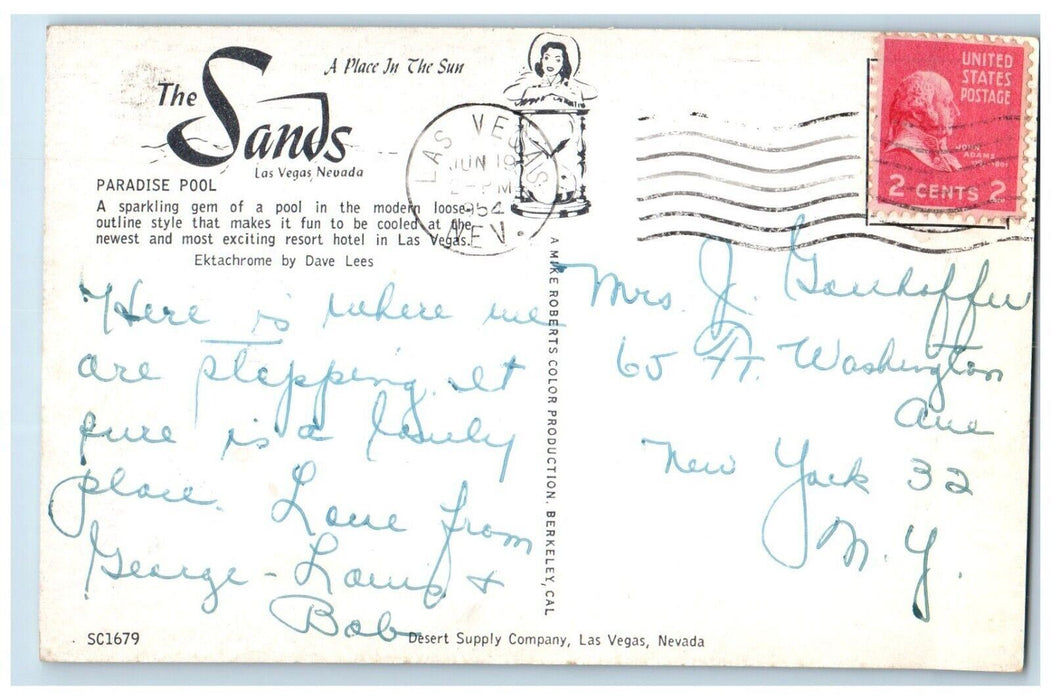 A Place In The Sun
The Sands
Las Vegas, Nevada
PARADISE POOL
A sparkling gem of a pool in the modern loose-
outline style that makes it fun to be cooled at the
newest and most exciting resort hotel in Las Vegas.
Ektachrome by Dave Lees
LAS VEGAS
JUN 19
2-PM
1954
NEV.
UNITED
STATES
POSTAGE
JOHN
ADAMS
2 CENTS 2
Here is where we
are stopping. It
sure is a lovely
place. Love from
George - Louis +
Bob
A MIKE ROBERTS COLOR PRODUCTION. BERKELEY, CAL
Mrs. J.
65 Ft. Washington
Ave
New York 32
N.Y.
SC1679
Desert Supply Company, Las Vegas, Nevada